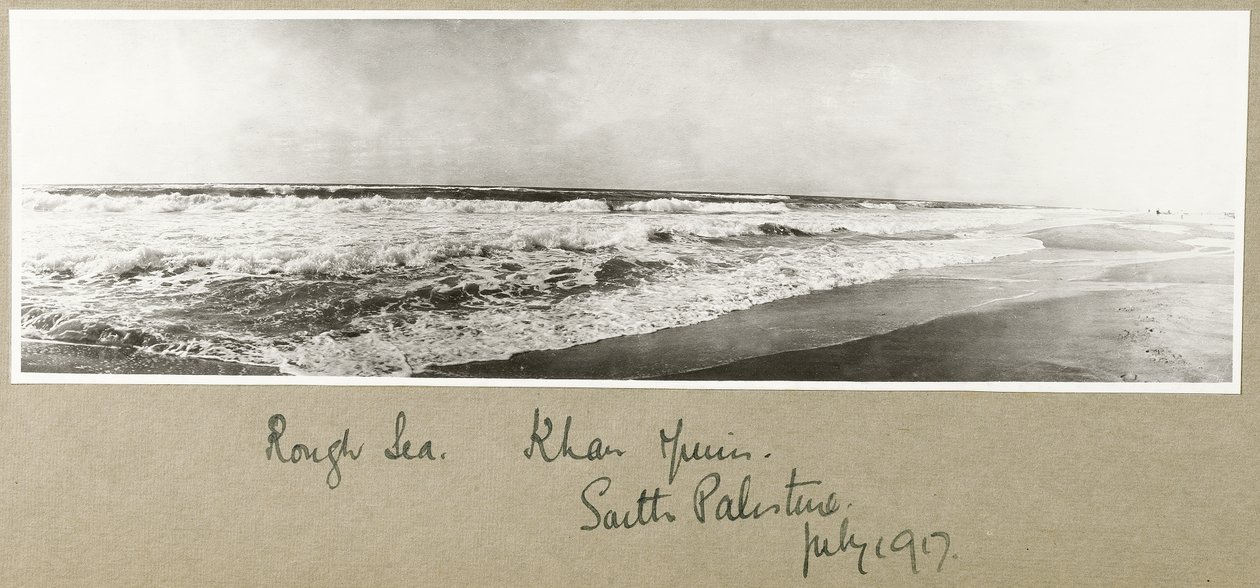 Rough Sea. Khan Yunis.
South Palestine.
July 1917.